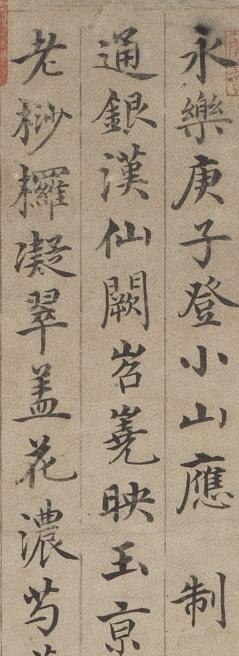 永樂庚子登小山應 制
通銀漢仙闕岧嶤映玉亰
老桫欏凝翠盖花濃芍